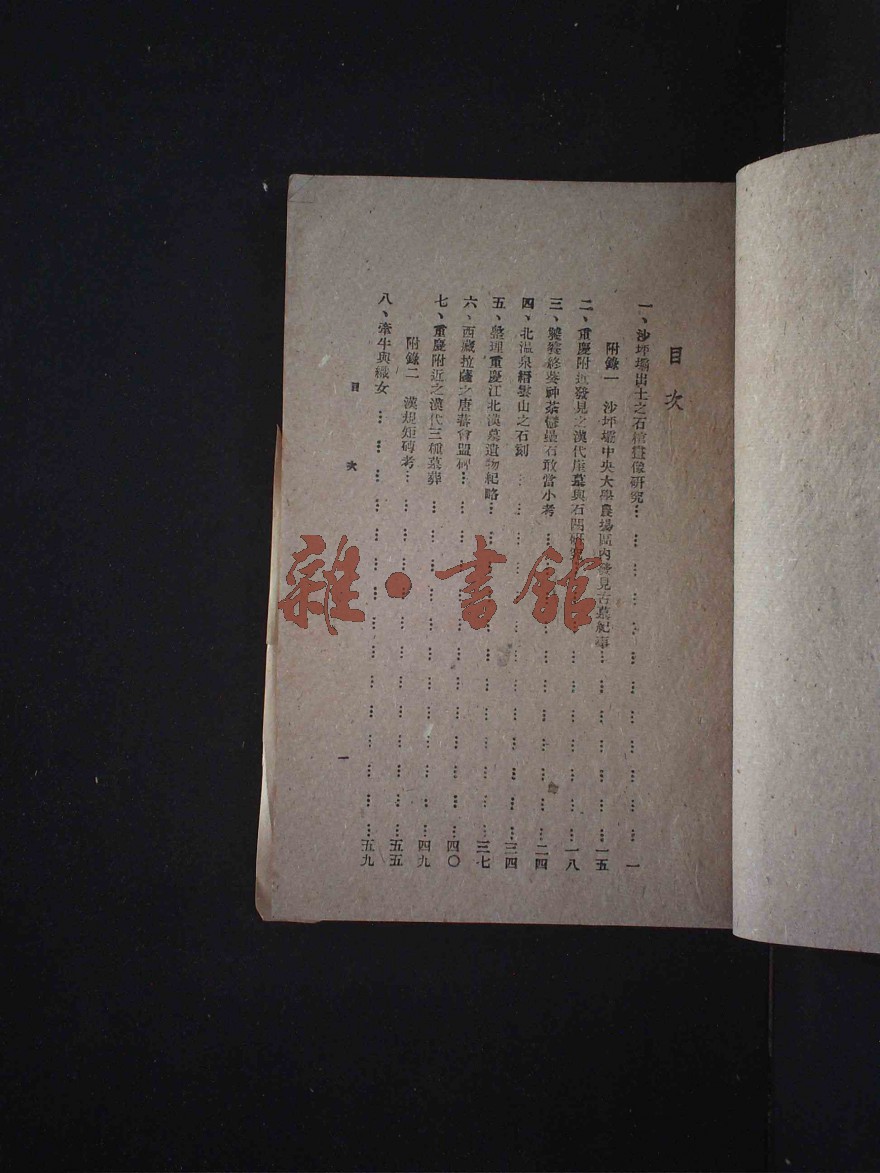 目次
一、沙坪壩出土之石棺畫像研究…………………………一
附錄一 沙坪壩中央大學農場區內發見古墓紀事…………………一五
二、重慶附近發見之漢代崖墓與石闕研究…………………一八
三、獎葵終葵神荼鬱壘石敢當小考…………………二四
四、北溫泉縉雲山之石刻…………………三四
五、整理重慶江北漢墓遺物紀略…………………三七
六、西藏拉薩之唐蕃會盟碑…………………四〇
七、重慶附近之漢代三種墓葬…………………四九
附錄二 漢規矩磚考…………………五五
八、牽牛與織女…………………五九
目次
一
雜·書館